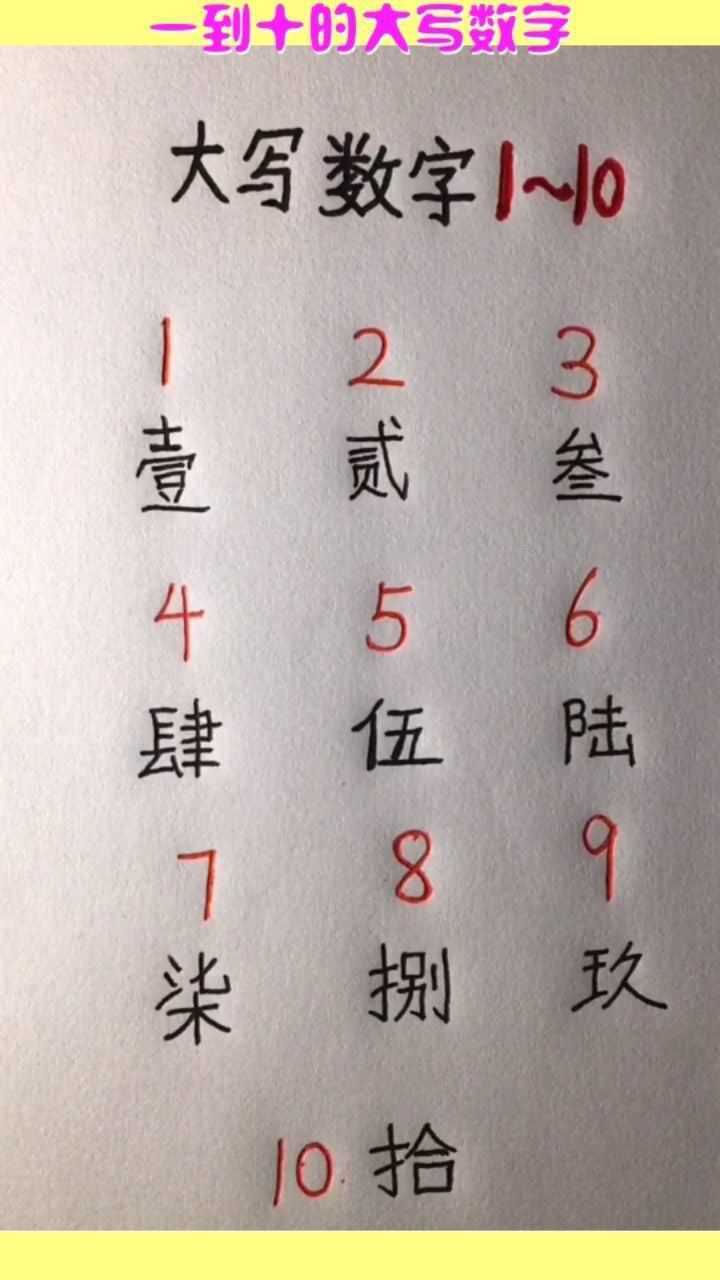 一到十的大写数字
大写数字1~10
1 2 3
壹 贰 叁
4 5 6
肆 伍 陆
7 8 9
柒 捌 玖
10 拾